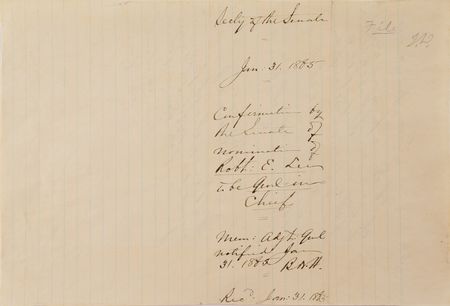 Secty of the Senate
File
Jan. 31. 1865
Confirmation by
the Senate of
nomination of
Robt. E. Lee
to be Genl in
Chief
Mem: Adjt Genl
notified Jan
31. 1865 B.N.H.
Recd. Jan: 31. 1865